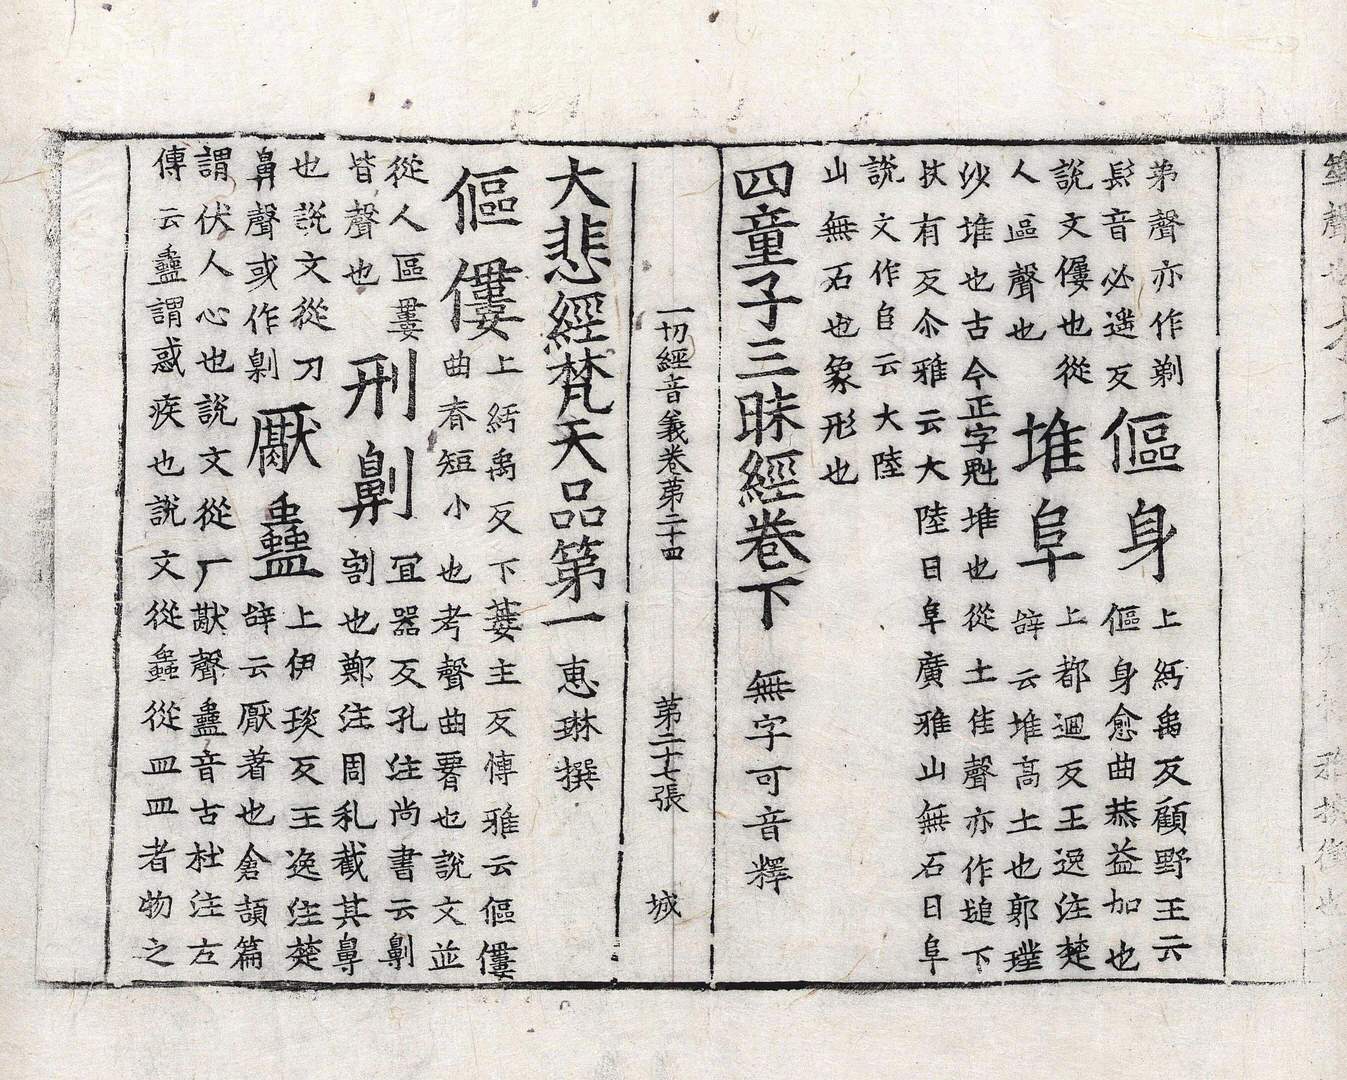 弟聲亦作剃
髟音必遥反
傴身
上紆禹反顧野王云
傴身愈曲恭益加也
說文僂也從
人區聲也
堆阜
上都迴反王逸注楚
辭云堆高土也郭璞
沙堆也古今正字堆也從土隹聲亦作塠下
扶有反尒雅云大陸曰阜廣雅山無石曰阜
說文作𠂤云大陸
山無石也象形也
四童子三昧經卷下 無字可音釋
一切經音義卷第二十四 第二十七張 城
大悲經梵天品第一 惠琳撰
傴僂
上紆禹反下蔞主反博雅云傴僂
曲脊短小也考聲曲也說文並
從人區婁
皆聲也
刑劓
冝器反孔注尚書云劓
割也鄭注周礼截其鼻
也說文從刀
鼻聲或作劓
厭蠱
上伊琰反王逸注楚
辭云厭著也倉頡篇
謂伏人心也說文從厂猒聲蠱音古杜注左
傳云蠱謂惑疾也說文從蟲從皿皿者物之